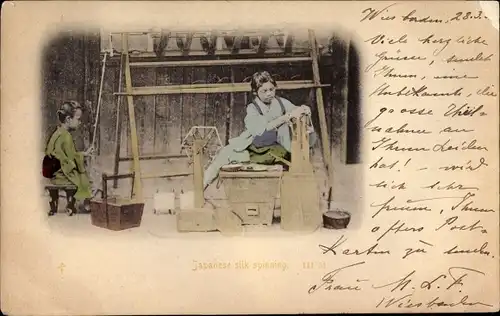 Wiesbaden, 28.3.
Viele herzliche
Grüsse, sendet
Ihnen, eine
Unbekannte, die
grosse Theil-
nahme an
Ihrem Leiden
hat! – wird
sich sehr
freuen, Ihnen
öfters Post-
Karten zu senden.
Frau M. L. F.
Wiesbaden
Japanese silk spinning.